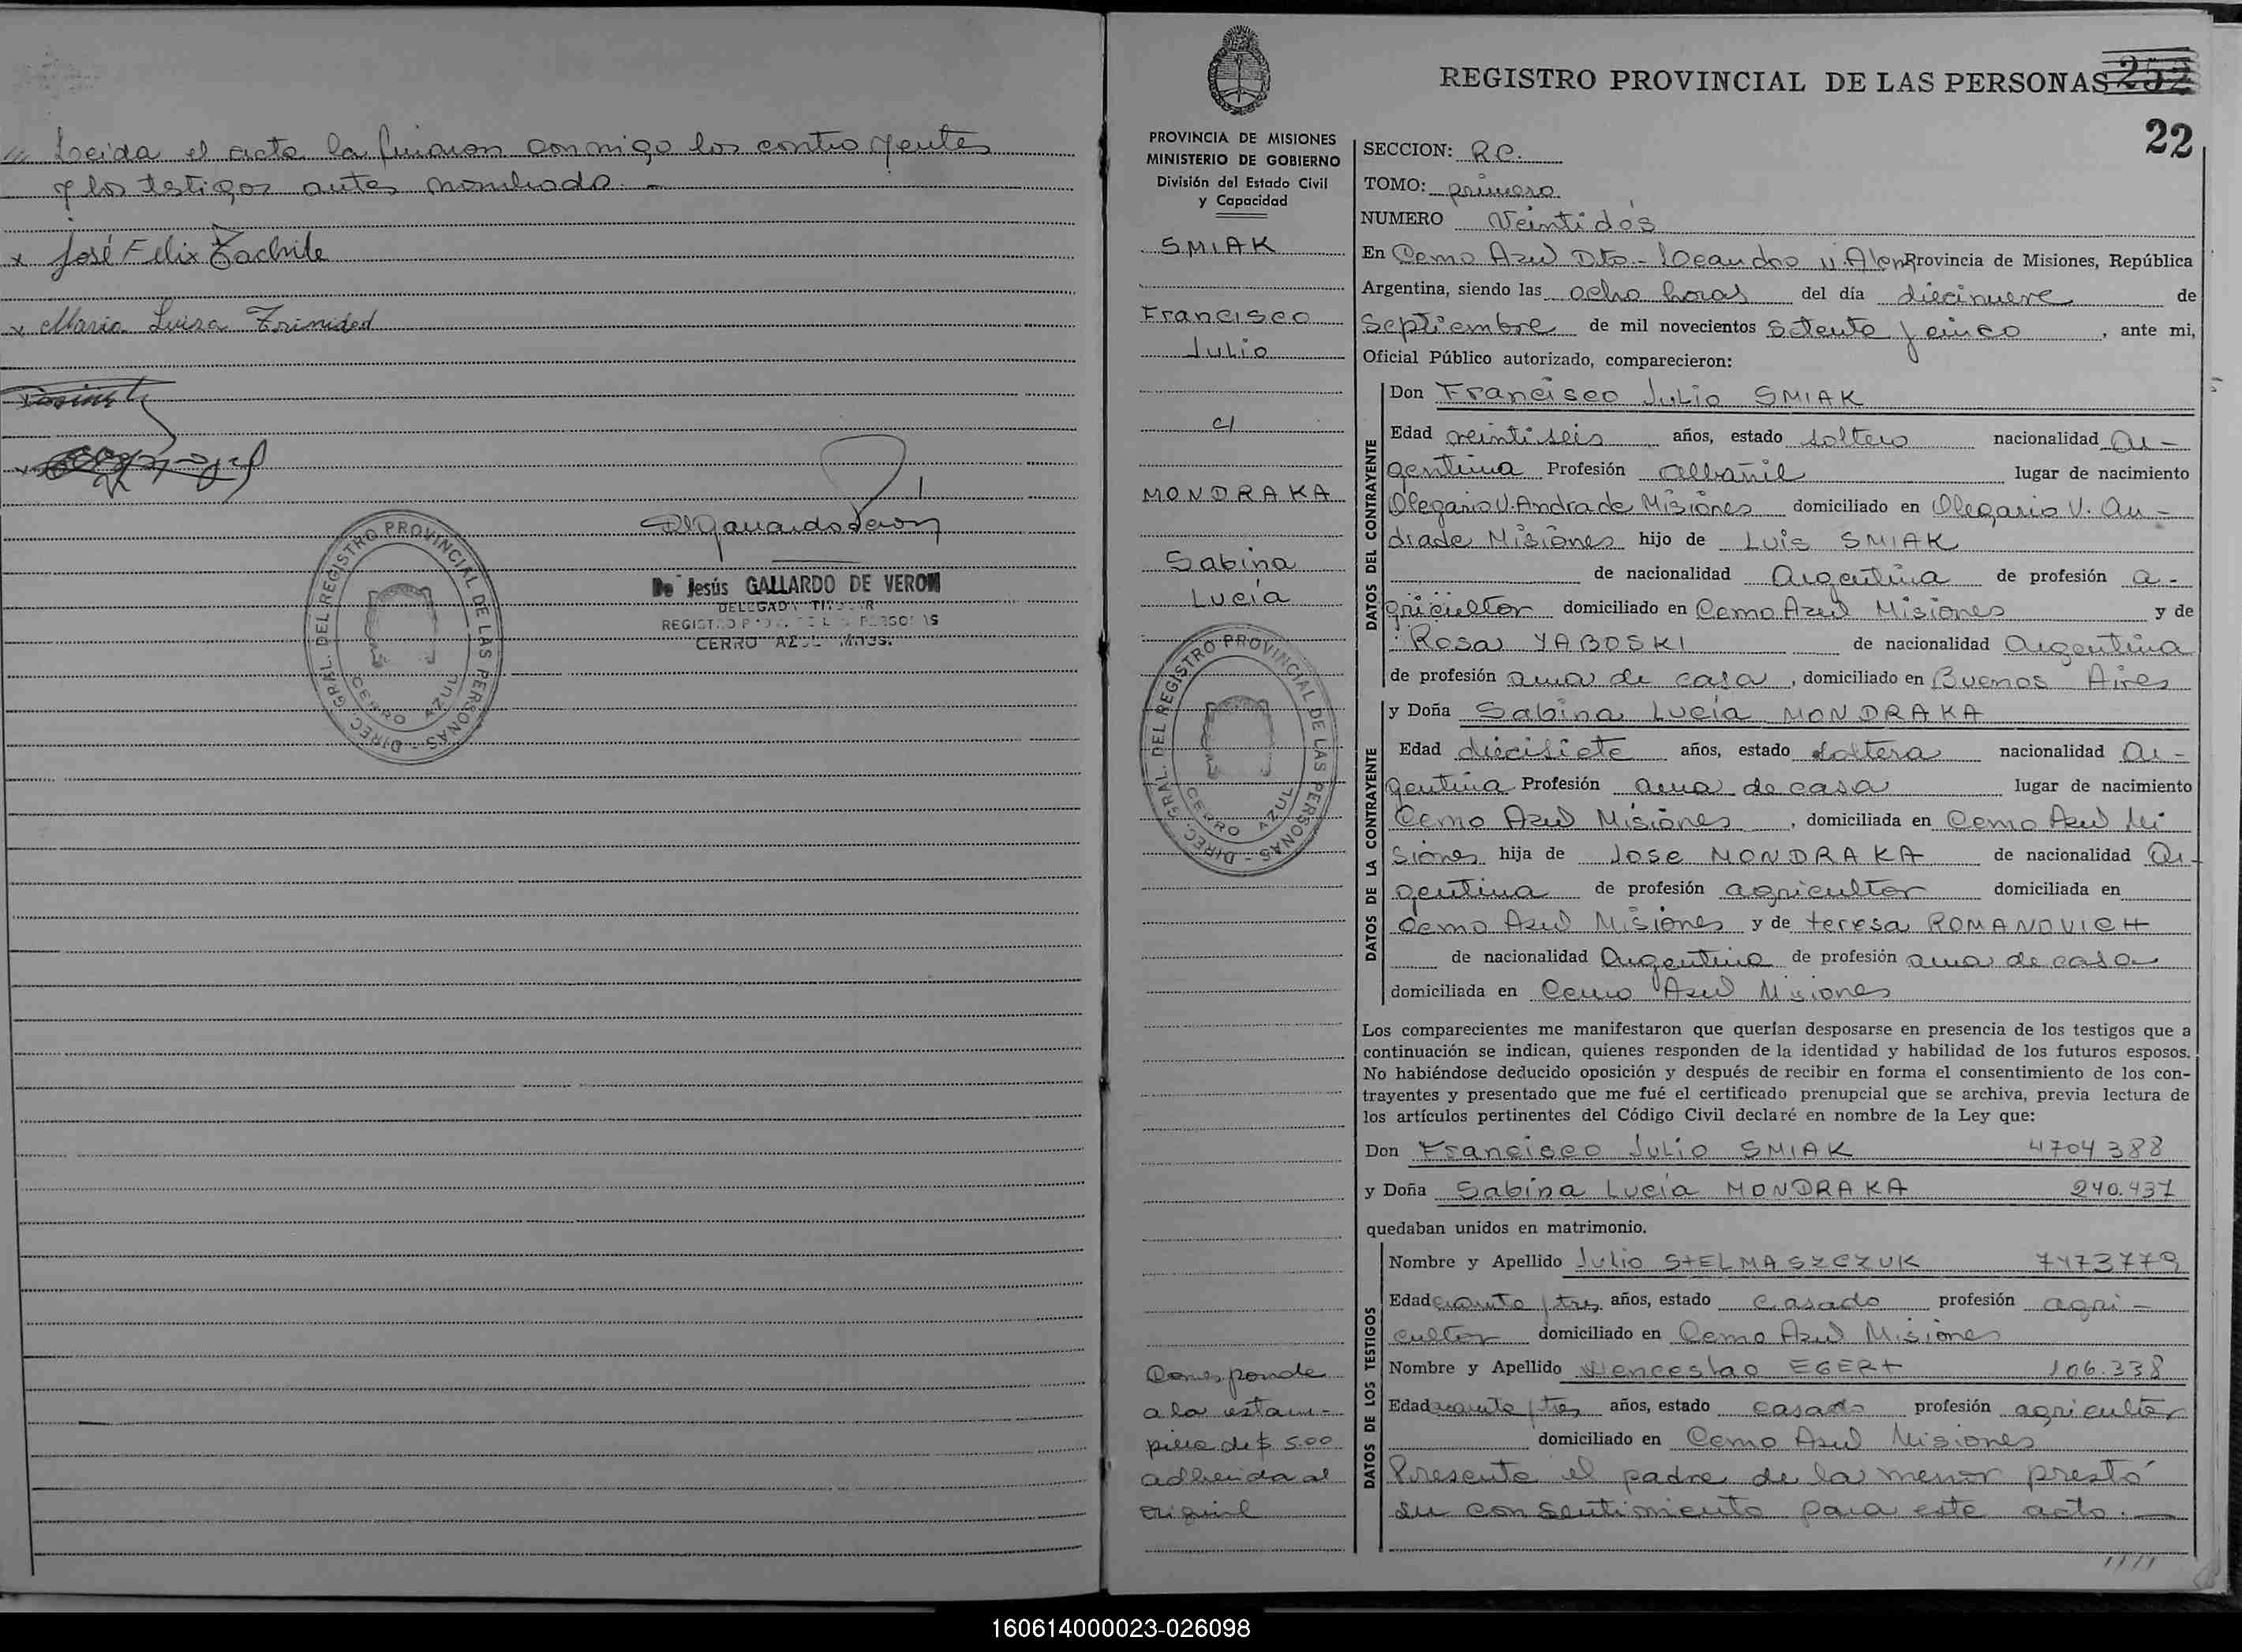 /// Leida el acta la firmaron conmigo los contrayentes
y los testigos antes nombrado. -
x José Felix
x Maria Luisa Trinidad
De Jesús GALLARDO DE VERON
DELEGADA TITULAR
CERRO AZUL - MNES.
DIREC. GRAL. DEL REGISTRO PROVINCIAL DE LAS PERSONAS
CERRO AZUL
REGISTRO PROVINCIAL DE LAS PERSONAS 252
22
PROVINCIA DE MISIONES
MINISTERIO DE GOBIERNO
División del Estado Civil
y Capacidad
SMIAK
Francisco
Julio
c/
MONDRAKA
Sabina
Lucía
DIREC. GRAL. DEL REGISTRO PROVINCIAL DE LAS PERSONAS
CERRO AZUL
Corresponde
a la estam-
pilla de $ 5.00
adherida al
original
SECCION: R.C.
TOMO: primero
NUMERO Veintidós
En Cerro Azul Dto - Leandro N. Alem Provincia de Misiones, República
Argentina, siendo las ocho horas del día diecinueve de
Septiembre de mil novecientos Setenta y cinco , ante mi,
Oficial Público autorizado, comparecieron:
DATOS DEL CONTRAYENTE
Don Francisco Julio SMIAK
Edad veintiseis años, estado soltero nacionalidad Ar-
gentina Profesión albañil lugar de nacimiento
Olegario V. Andrade Misiones domiciliado en Olegario V. An-
drade Misiones hijo de Luis SMIAK
de nacionalidad Argentina de profesión a-
gricultor domiciliado en Cerro Azul Misiones y de
Rosa YABOSKI de nacionalidad Argentina
de profesión ama de casa , domiciliado en Buenos Aires
DATOS DE LA CONTRAYENTE
y Doña Sabina Lucía MONDRAKA
Edad diecisiete años, estado soltera nacionalidad Ar-
gentina Profesión ama de casa lugar de nacimiento
Cerro Azul Misiones , domiciliada en Cerro Azul Mi
siones hija de Jose MONDRAKA de nacionalidad Ar-
gentina de profesión agricultor domiciliada en
Cerro Azul Misiones y de teresa ROMANOVICH
de nacionalidad Argentina de profesión ama de casa
domiciliada en Cerro Azul Misiones
Los comparecientes me manifestaron que querían desposarse en presencia de los testigos que a
continuación se indican, quienes responden de la identidad y habilidad de los futuros esposos.
No habiéndose deducido oposición y después de recibir en forma el consentimiento de los con-
trayentes y presentado que me fué el certificado prenupcial que se archiva, previa lectura de
los artículos pertinentes del Código Civil declaré en nombre de la Ley que:
Don Francisco Julio SMIAK 4704388
y Doña Sabina Lucía MONDRAKA 240.437
quedaban unidos en matrimonio.
DATOS DE LOS TESTIGOS
Nombre y Apellido Julio STELMASZCZUK 7473779
Edad y tres años, estado casado profesión agri-
cultor domiciliado en Cerro Azul Misiones
Nombre y Apellido Wenceslao EGERT 106.338
Edad y tres años, estado casado profesión agricultor
domiciliado en Cerro Azul Misiones
Presente el padre de la menor prestó
su consentimiento para este acto. —
////
160614000023-026098